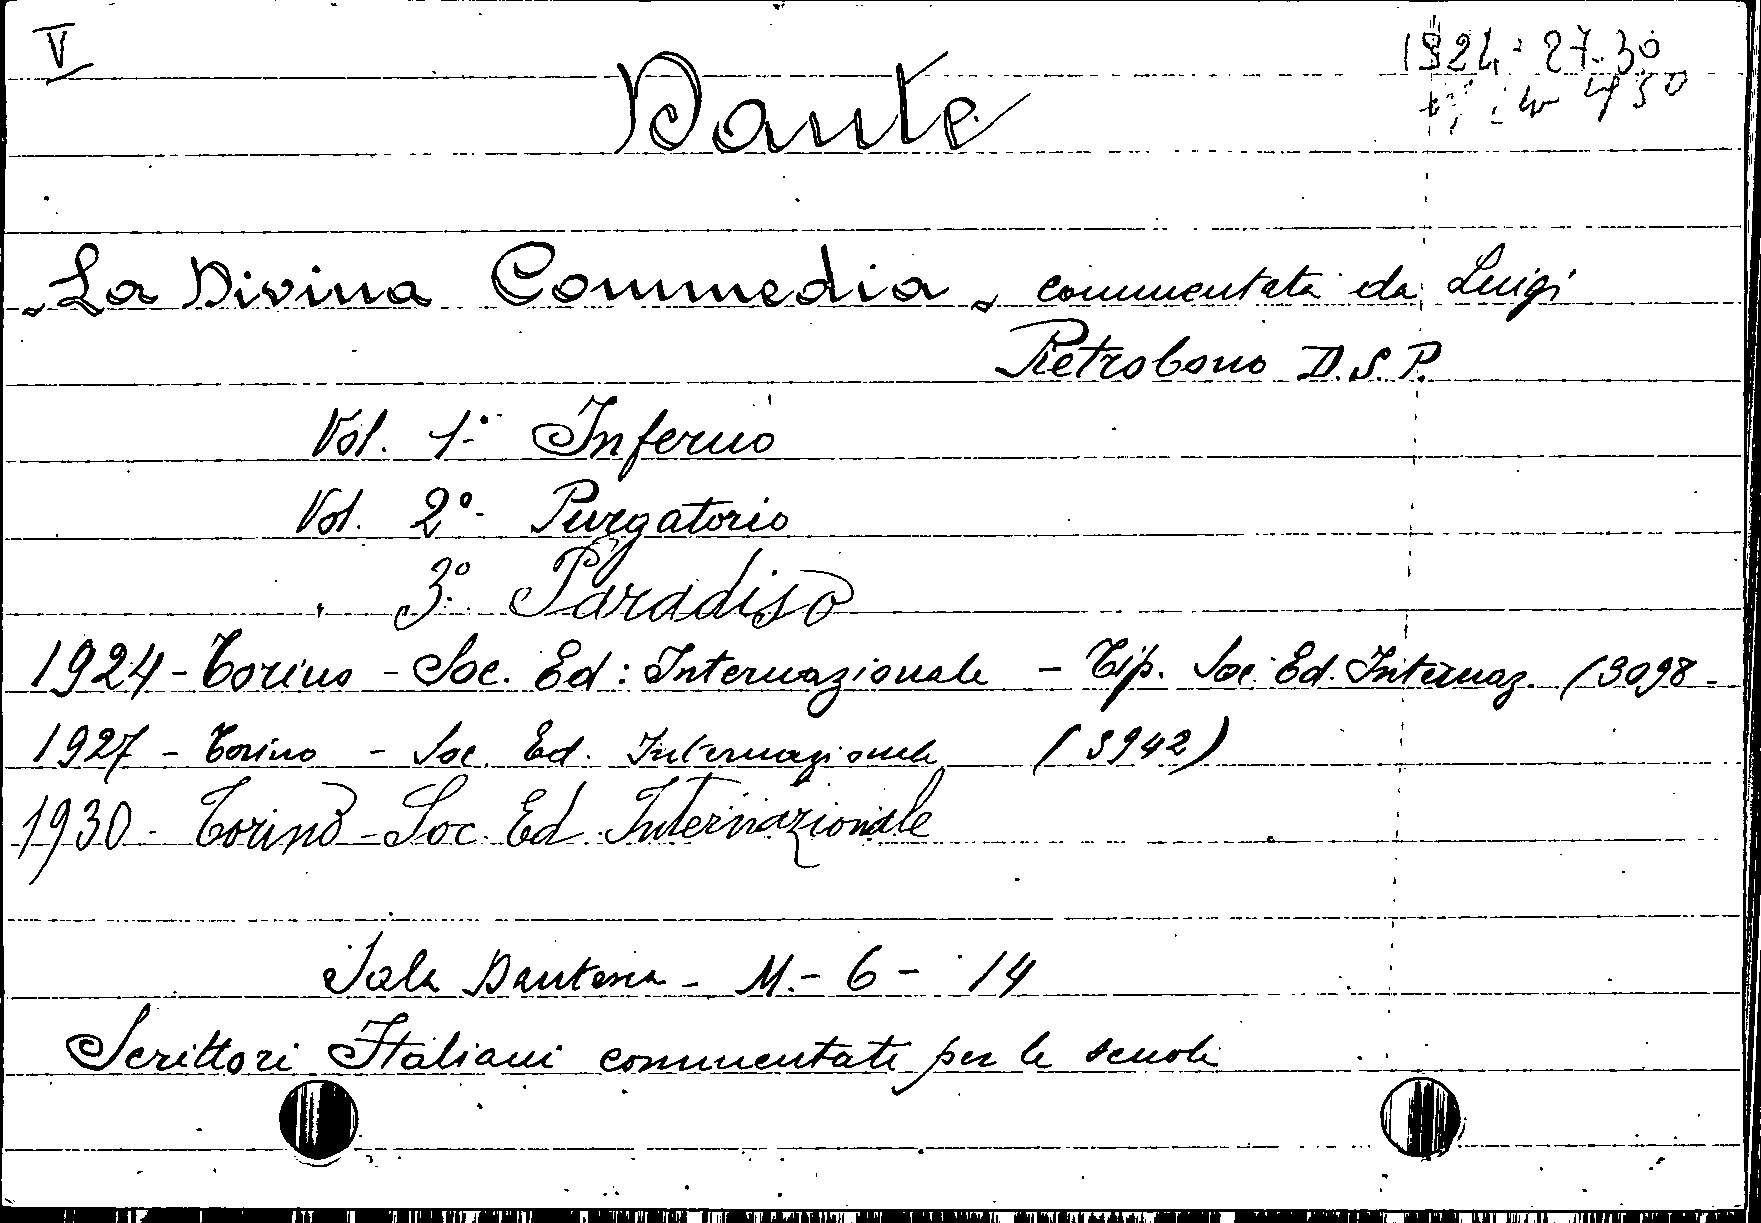 V
1924 - 27-30
Dante
„La Divina Commedia„ commentata da Luigi
Pietrobono D.S.P.
Vol. 1º Inferno
Vol. 2º - Purgatorio
3º Paradiso
1924 - Torino - Soc. Ed: Internazionale - Tip. Soc. Ed. Internaz. (3098 -
1927 - Torino - Soc. Ed. Internazionale (3942)
1930 - Torino - Soc. Ed. Internazionale
Sala Dantesca - M. - 6 - 14
Scrittori Italiani commentati per le scuole